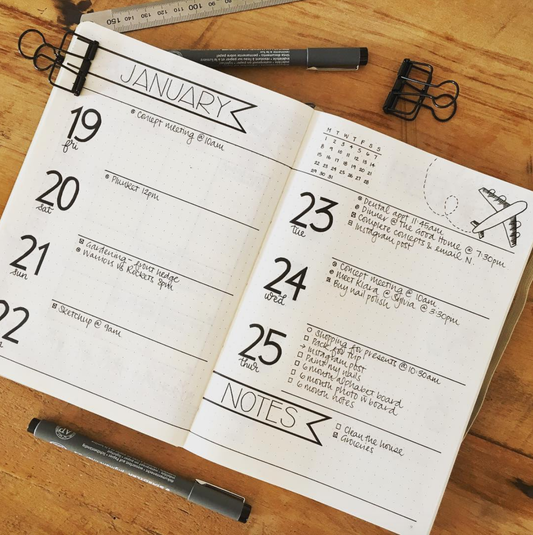 JANUARY
19
fri
Concept meeting @ 10am
20
sat
Plunket 12pm
21
sun
Gardening - front hedge
Warriors vs Rockets 3pm
22
Sketchup @ 9am
M T W T F S S
1 2 3 4 5 6 7
8 9 10 11 12 13 14
15 16 17 18 19 20 21
22 23 24 25 26 27 28
29 30 31
23
tue
Dental appt 11:45am
Dinner @ The Good Home @ 7:30pm
Complete concepts & email N.
Instagram post
24
wed
Concept meeting @ 10am
Meet Kiara @ Sylvia @ 3:30pm
Buy nail polish
25
thur
Shopping for presents @ 10:30am
Pack for trip!
Instagram post
Paint my nails
6 month alphabet board
6 month photo w board
6 month notes
NOTES
Clean the house
Groceries